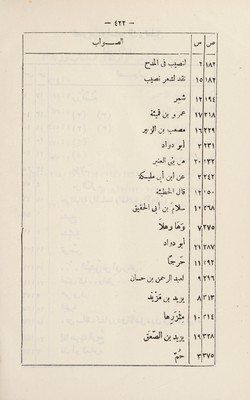 — ٤٢٢ —
ص س الصـــواب
١٨٢ ٢ لنصيب فى المدح
١٨٢ ١٥ نقد لشعر نصيب
١٩٤ ١٢ شمر
٢١٨ ١٧ عمرو بن قميئة
٢٢٩ ١٦ مصعب بن الزبير
٢٣١ ٣ أبو دواد
٢٠ من بنى العنبر
٢٤٢ ٣ عن ابن أبى مليكة
١٢ قال الحطيئة
٢٦٨ ١٠ سلام بن أبى الحقيق
٢٧٥ ٧ وَهَا وهلَا
٢٨٧ ٢١ أبو دواد
١١ حرجًا
٢٩٦ ٩ لعبد الرحمن بن حسان
٣١٣ ٨ يزيد بن مَزْيَد
٣١٤ ١٠ مِئْزَرها
٣٢٨ ١٩ يزيد بن الصَّعِق
٣٧٥ ٣ حُمّ